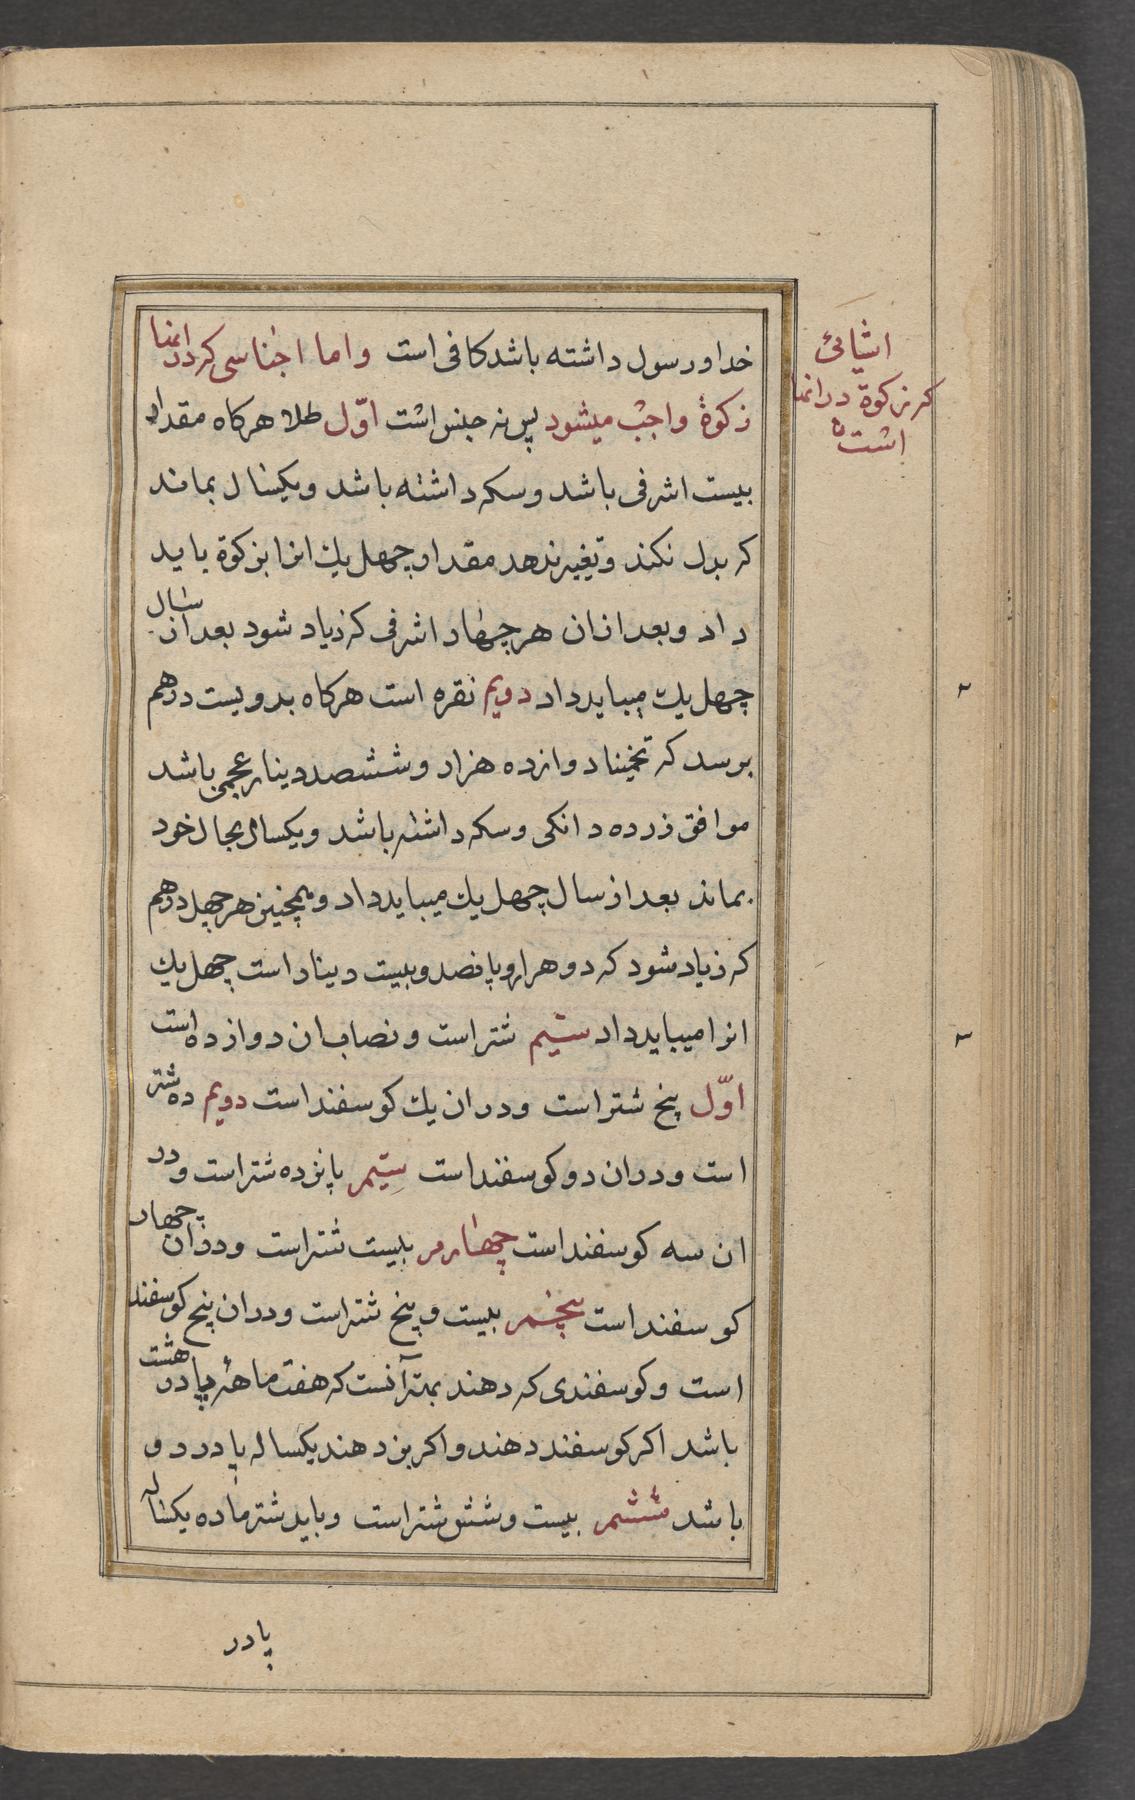 خدا و رسول داشته باشد کافی است و اما اجناسی که در انها
زکوة واجب میشود پس نه جنس است اوّل طلا هرکاه مقدار
بیست اشرفی باشد و سکه داشته باشد و یکسال بماند
که بدل نکند و تغییر ندهد مقدار چهل یك انرا بزکوة باید
داد و بعد از ان هر چهار اشرفی که زیاد شود بعد از سال
چهل یك میباید داد دویم نقره است هرکاه بدویست درهم
برسد که تخمینا دوازده هزار و ششصد دینار عجمی باشد
موافق زر ده دانکی و سکه داشته باشد و یکسال بحال خود
بماند بعد از سال چهل یك میباید داد و همچنین هر چهل درهم
که زیاد شود که دو هزار و پانصد و بیست دینار است چهل یك
انرا میباید داد سیّم شتر است و نصاب ان دوازده است
اوّل پنج شتر است و در ان یك کوسفند است دویم ده شتر
است و در ان دو کوسفند است سیّم پانزده شتر است و در
ان سه کوسفند است چهارم بیست شتر است و در ان چهار
کوسفند است پنجم بیست و پنج شتر است و در ان پنج کوسفند
است و کوسفندی که دهند بهتر آنست که هفت ماهه پا در هشت
باشد اکر کوسفند دهند و اکر بز دهند یکساله پا در دو
باشد ششم بیست و شش شتر است و باید شتر ماده یکساله
پا در
اشیائی
که زکوة در انها
است
۲
۳